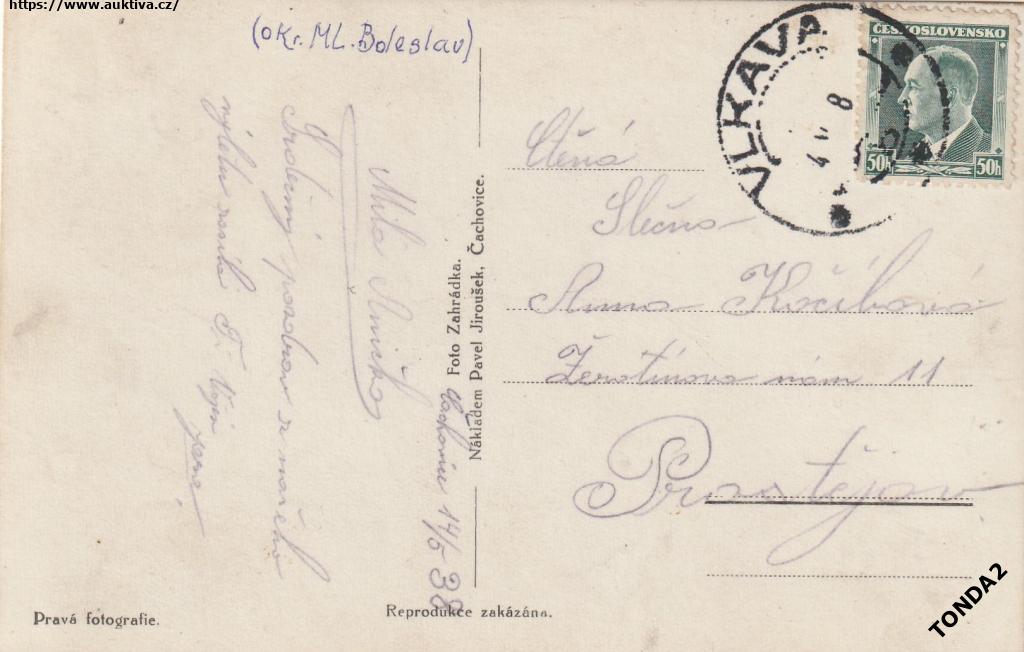 https://www.auktiva.cz/
(okr. ML. Boleslav)
Čachovice 14/5 38
Milá Aničko
Srdečný pozdrav z našeho
výletu zasílá
Foto Zahrádka.
Nákladem Pavel Jiroušek, Čachovice.
VLKAVA
ČESKOSLOVENSKO
50h 50h
Ctěná
Slečna
Anna Kočíbová
Žerotínovo nám 11
Prostějov
Pravá fotografie.
Reprodukce zakázána.
TONDA2